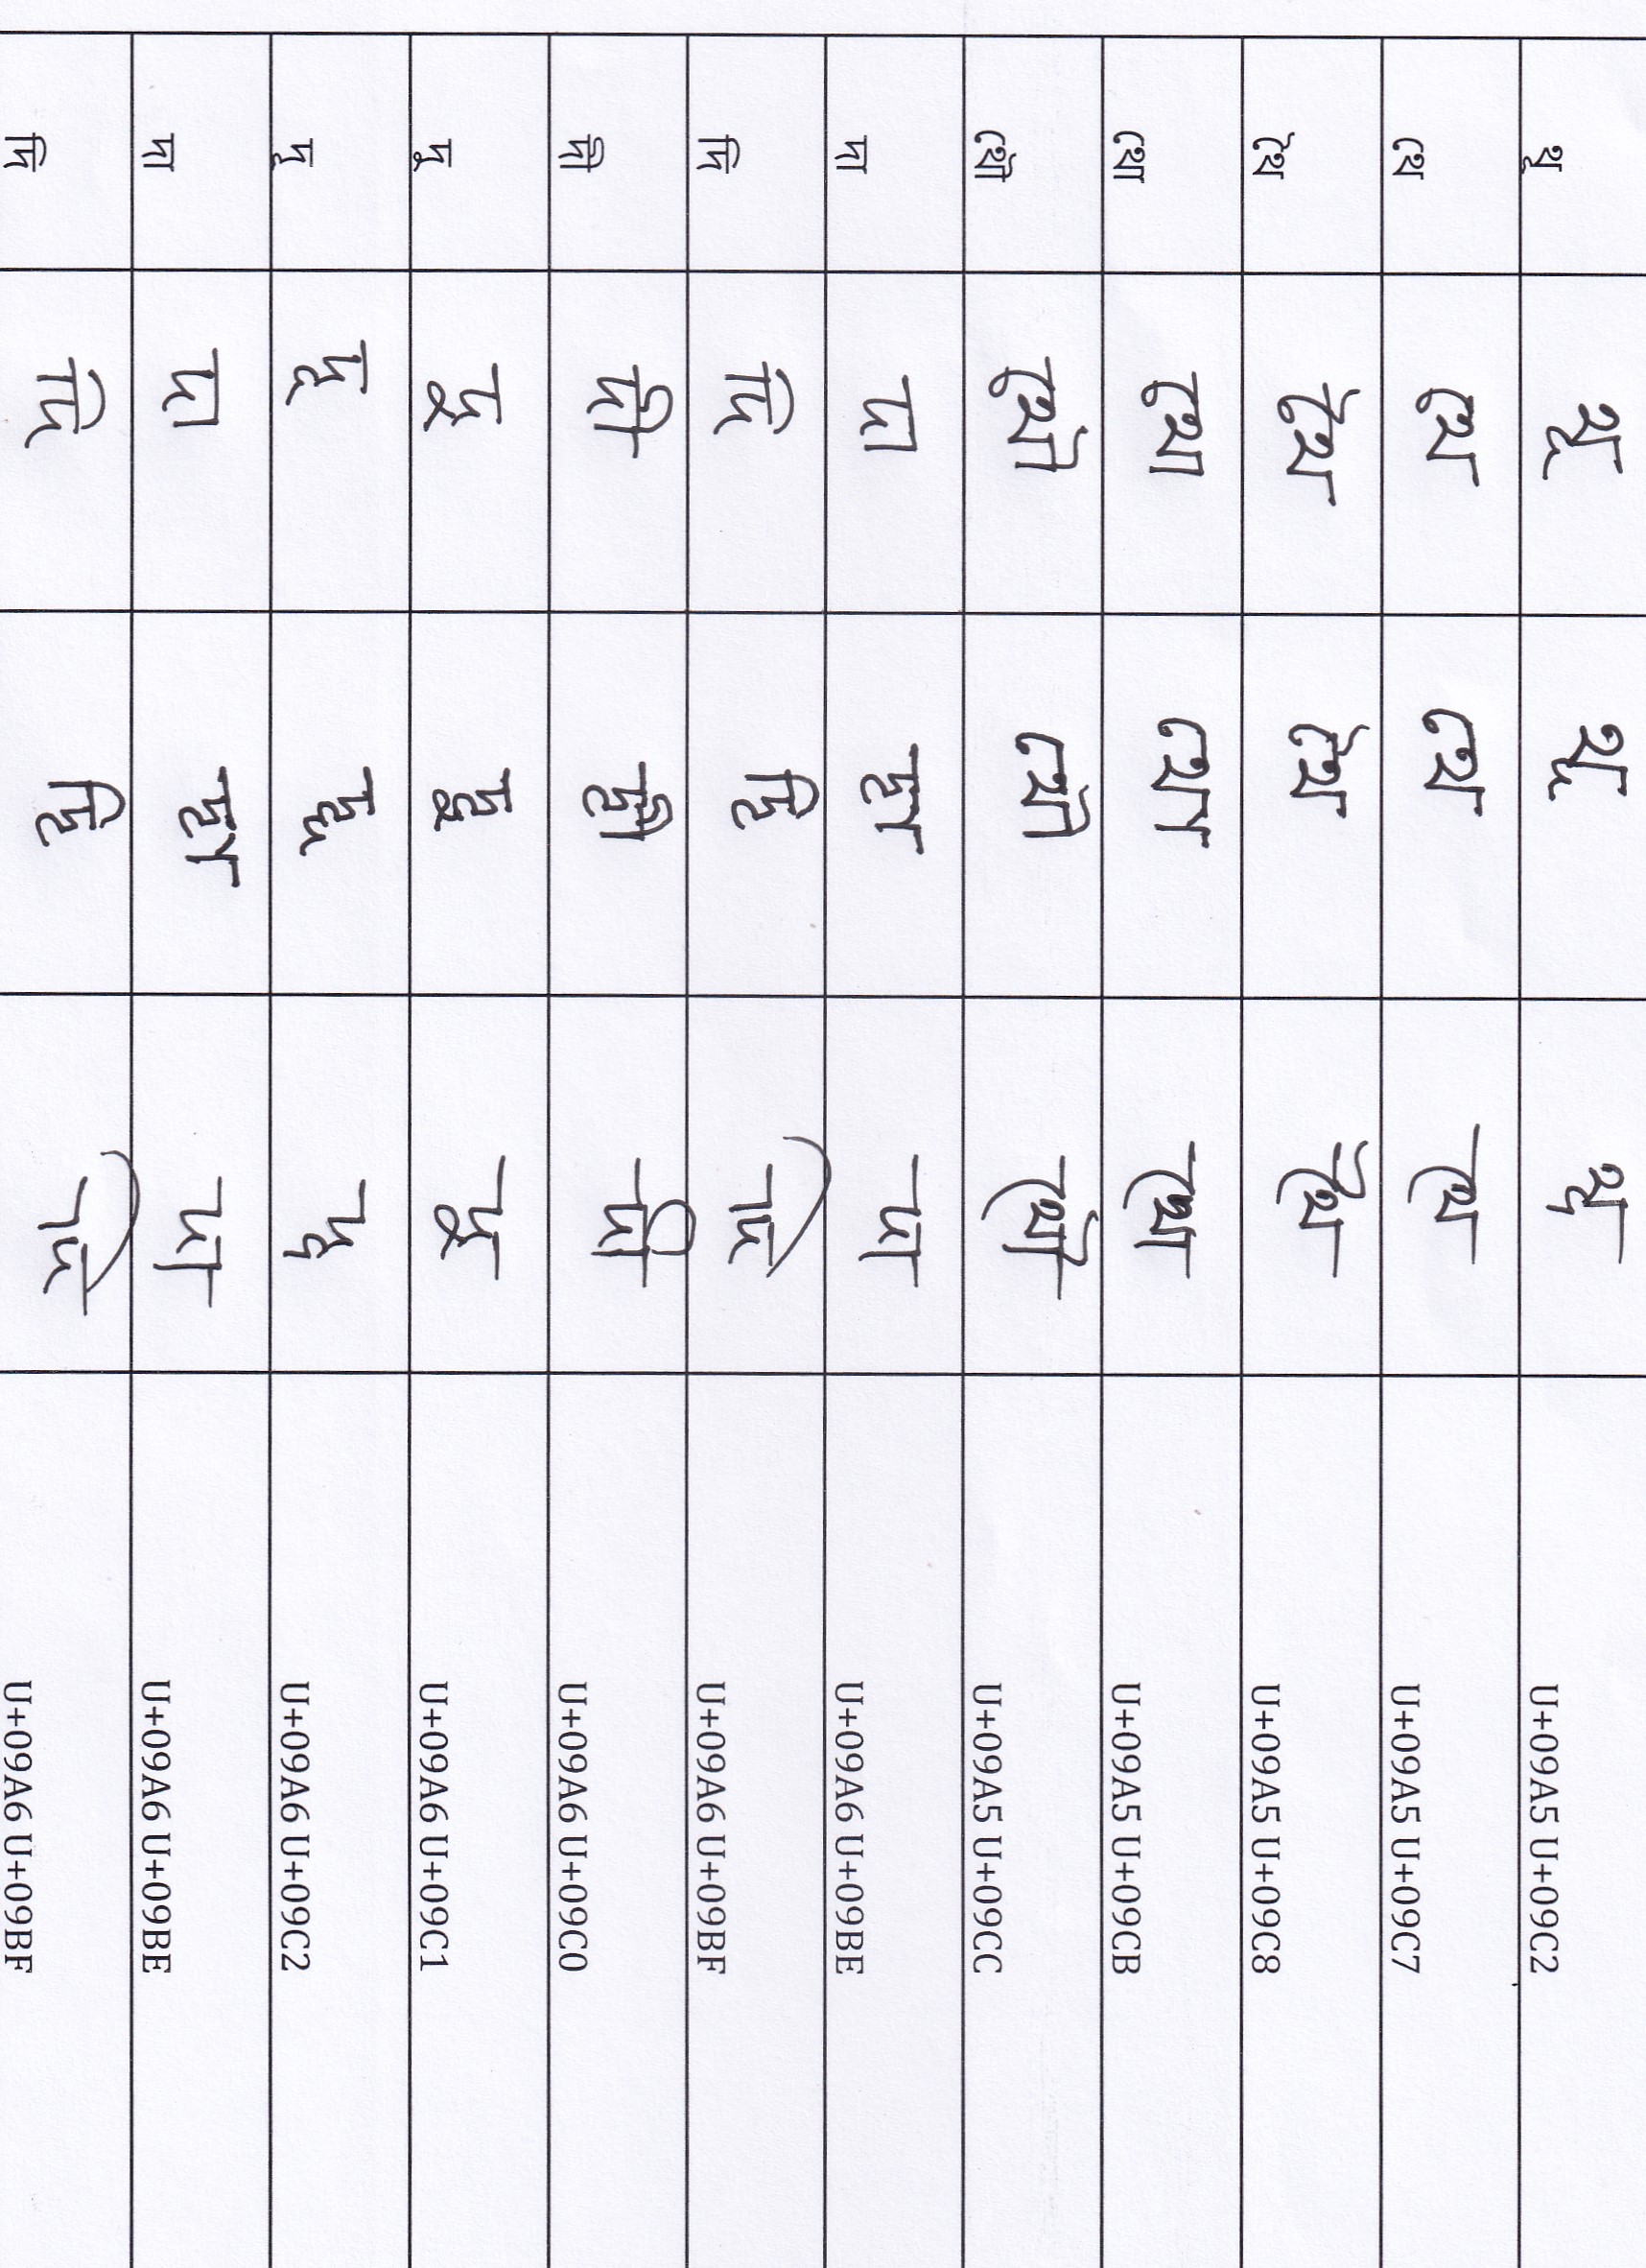 থূ থূ থূ থূ U+09A5 U+09C2
থে থে থে থে U+09A5 U+09C7
থৈ থৈ থৈ থৈ U+09A5 U+09C8
থো থো থো থো U+09A5 U+09CB
থৌ থৌ থৌ থৌ U+09A5 U+09CC
দা দা দা দা U+09A6 U+09BE
দি দি দি দি U+09A6 U+09BF
দী দী দী দী U+09A6 U+09C0
দু দু দু দু U+09A6 U+09C1
দূ দূ দূ দূ U+09A6 U+09C2
দা দা দা দা U+09A6 U+09BE
দি দি দি দি U+09A6 U+09BF